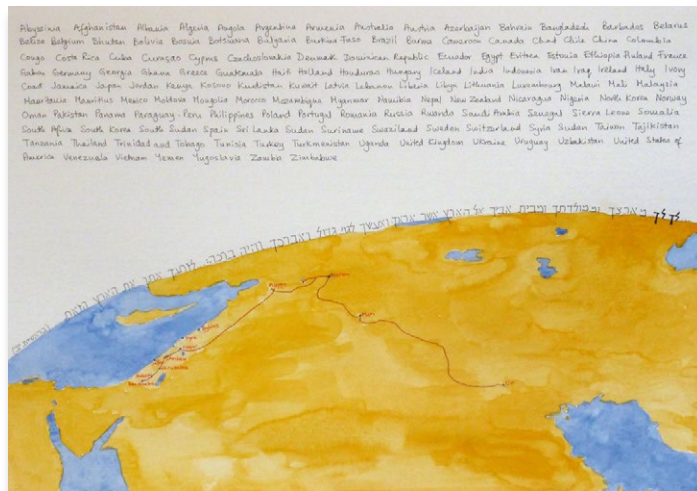 Abyssinia Afghanistan Albania Algeria Angola Argentina Armenia Australia Austria Azerbaijan Bahrain Bangladesh Barbados Belarus
Belize Belgium Bhutan Bolivia Bosnia Botswana Bulgaria Burkina Faso Brazil Burma Cameroon Canada Chad Chile China Colombia
Congo Costa Rica Cuba Curaçao Cyprus Czechoslovakia Denmark Dominican Republic Ecuador Egypt Eritrea Estonia Ethiopia Finland France
Gabon Germany Georgia Ghana Greece Guatemala Haiti Holland Honduras Hungary Iceland India Indonesia Iran Iraq Ireland Italy Ivory
Coast Jamaica Japan Jordan Kenya Kosovo Kurdistan Kuwait Latvia Lebanon Liberia Libya Lithuania Luxembourg Malawi Mali Malaysia
Mauritania Mauritius Mexico Moldova Mongolia Morocco Mozambique Myanmar Namibia Nepal New Zealand Nicaragua Nigeria North Korea Norway
Oman Pakistan Panama Paraguay Peru Philippines Poland Portugal Romania Russia Rwanda Saudi Arabia Senegal Sierra Leone Somalia
South Africa South Korea South Sudan Spain Sri Lanka Sudan Suriname Swaziland Sweden Switzerland Syria Sudan Taiwan Tajikistan
Tanzania Thailand Trinidad and Tobago Tunisia Turkey Turkmenistan Uganda United Kingdom Ukraine Uruguay Uzbekistan United States of
America Venezuela Vietnam Yemen Yugoslavia Zambia Zimbabwe
לך לך מארצך וממולדתך ומבית אביך אל הארץ אשר אראך ואעשך לגוי גדול ואברכך והיה ברכה: לזרעך אתן את הארץ הזאת
Mari